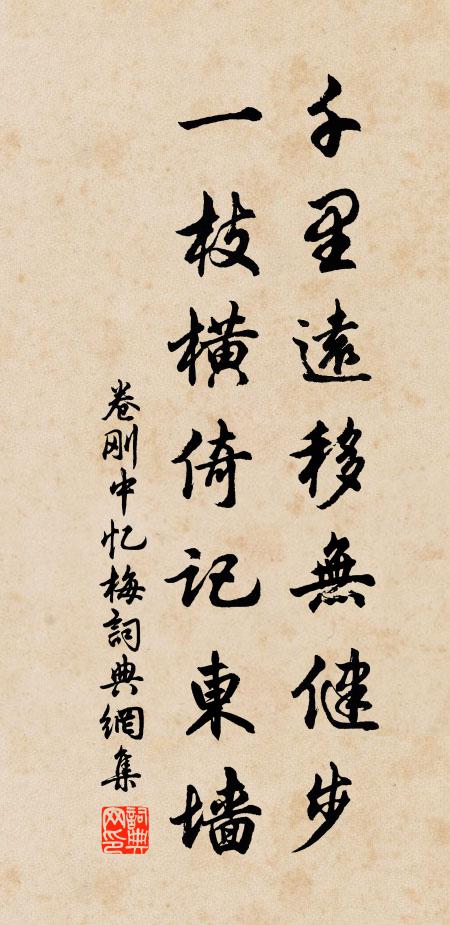 千里遠移無健步
一枝橫倚記東墙
卷刚中忆梅詞典網集
詞典网印